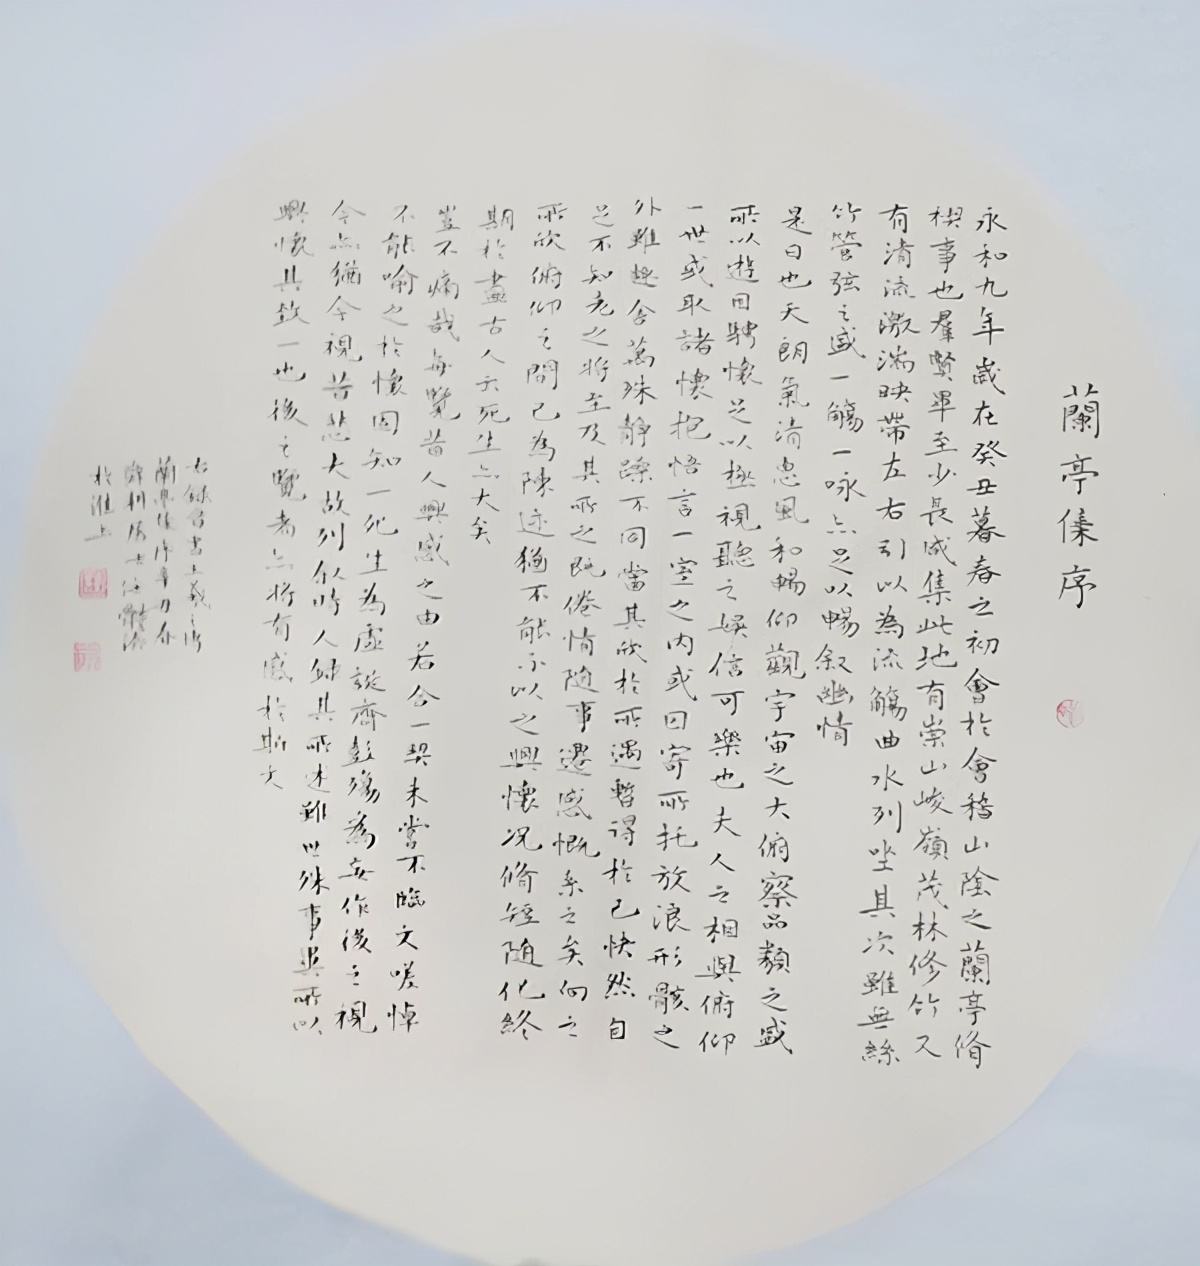 蘭亭傳序
永和九年歲在癸丑暮春之初會於會稽山陰之蘭亭脩
禊事也羣賢畢至少長咸集此地有崇山峻嶺茂林修竹又
有清流激湍映帶左右引以為流觴曲水列坐其次雖無絲
竹管弦之盛一觴一咏亦足以暢叙幽情
是日也天朗氣清惠風和暢仰觀宇宙之大俯察品類之盛
所以遊目騁懷足以極視聽之娛信可樂也夫人之相與俯仰
一世或取諸懷抱悟言一室之內或因寄所托放浪形骸之
外雖趣舍萬殊靜躁不同當其欣於所遇暫得於己快然自
足不知老之將至及其所之既倦情隨事遷感慨系之矣向之
所欣俯仰之間已為陳迹猶不能不以之興懷況脩短隨化終
期於盡古人云死生亦大矣
豈不痛哉每覽昔人興感之由若合一契未嘗不臨文嗟悼
不能喻之於懷固知一死生為虛誕齊彭殤為妄作後之視
今亦猶今視昔悲夫故列叙時人錄其所述雖世殊事異所以
興懷其致一也後之覽者亦將有感於斯文
右錄王羲之
蘭亭序
於淮上